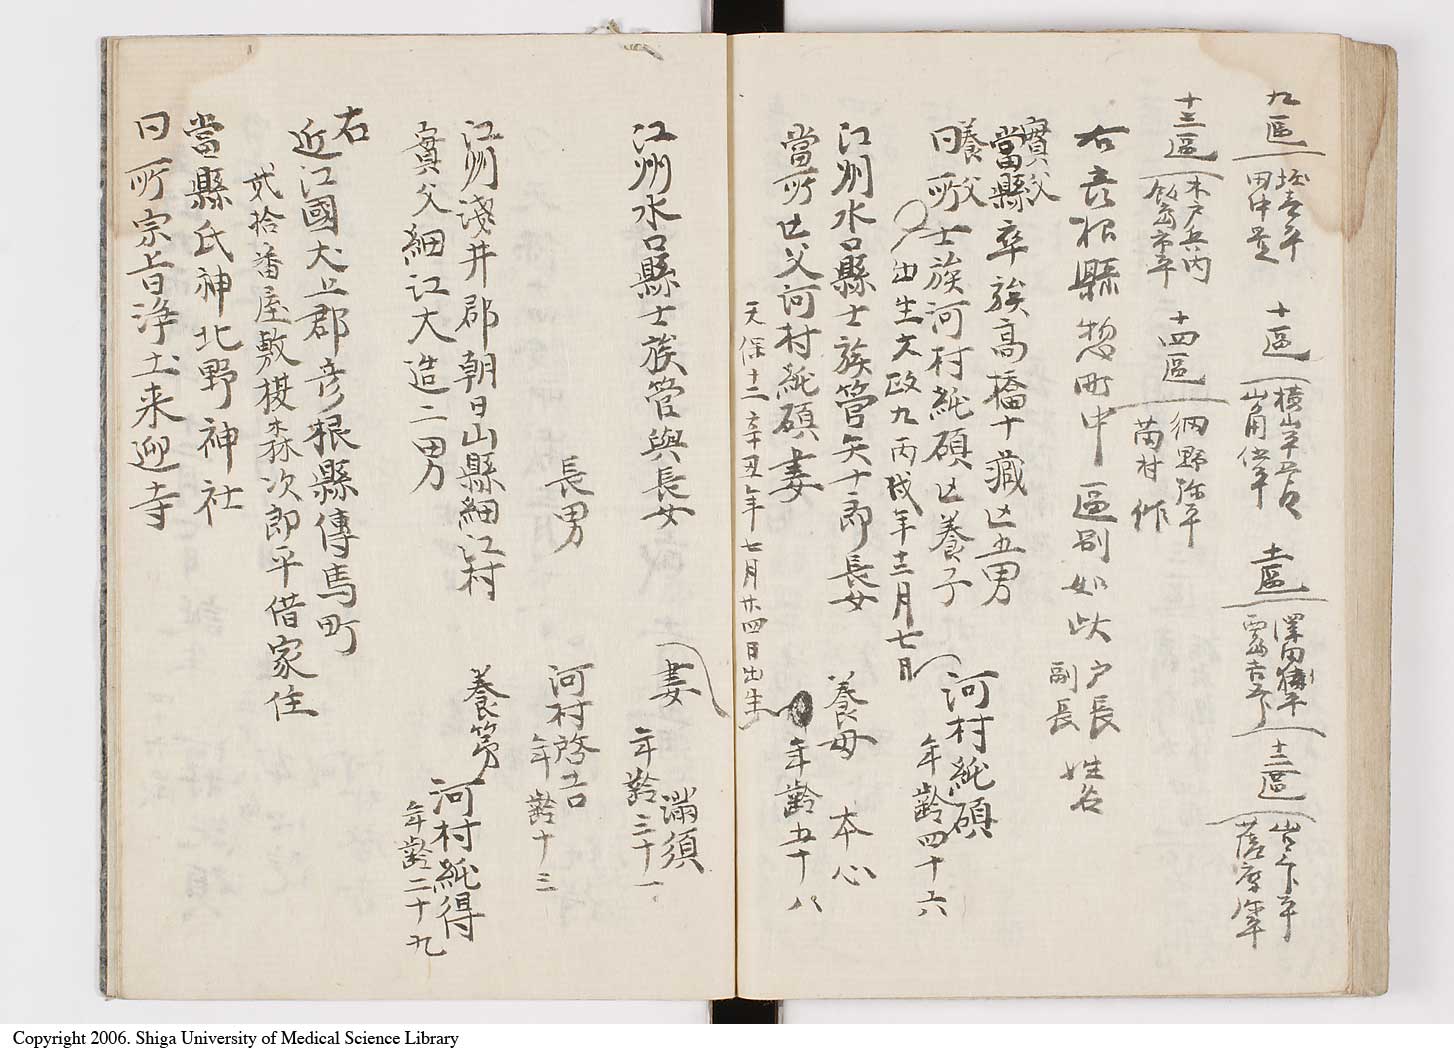 九區
田中
十區
十一區
十二區
十三區
木戸兵内
十四區
岡村作
右彦根縣惣町中區別如此
戸長
副長
姓名
實父
當縣卒族高橋十藏亡五男
養父
同所士族河村純碩亡養子
河村純碩
年齡四十六
出生文政九丙戌年十二月七日
江州水口縣士族菅矢十郎長女
養母
本心
當所亡父河村純碩妻
年齡五十八
天保十二辛丑年七月廿四日出生
江州水口縣士族菅與長女
妻
滿須
年齡三十一
長男
河村啓吉
年齡十三
江州淺井郡朝日山縣細江村
實父細江大造二男
養弟
河村純得
年齡二十九
右
近江國犬上郡彦根縣傳馬町
貳拾番屋敷模森次郎平借家住
當縣氏神北野神社
同所宗旨浄土来迎寺
Copyright 2006. Shiga University of Medical Science Library